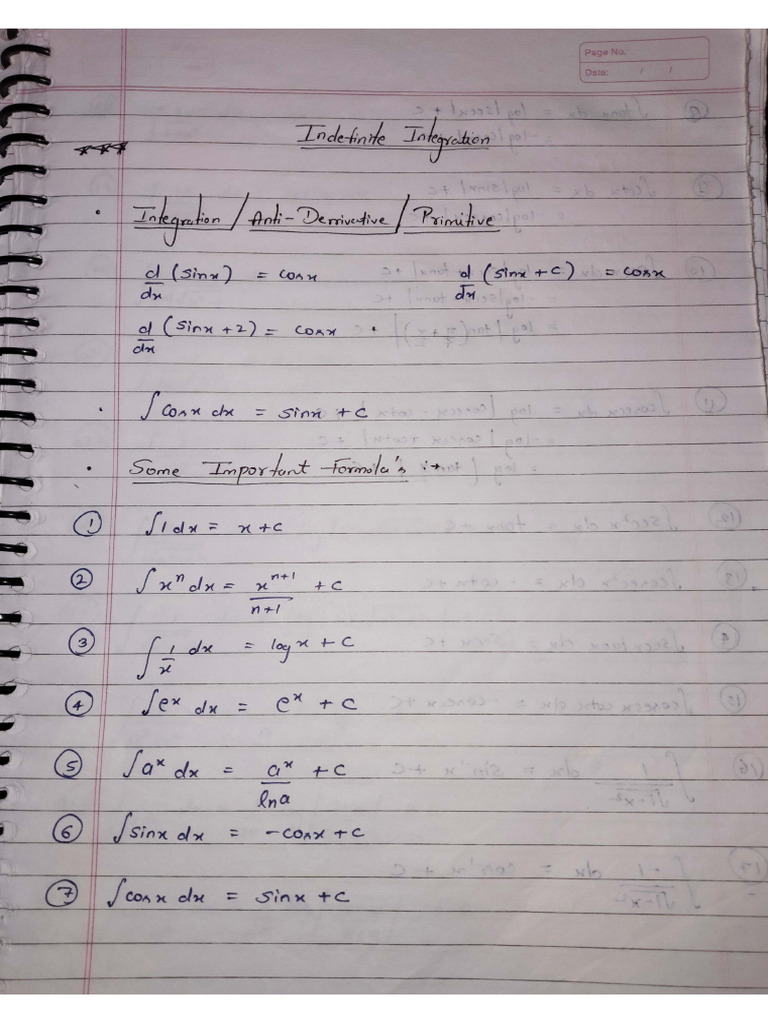 Page No.
Date: / /
Indefinite Integration
***
• Integration / Anti-Derrivative / Primitive
d/dx (sinx) = cosx d/dx (sinx + c) = cosx
d/dx (sinx + 2) = cosx .
• ∫ cosx dx = sinx + c
• Some Important Formola's :→
① ∫1 dx = x + c
② ∫xⁿ dx = xⁿ⁺¹/n+1 + c
③ ∫ 1/x dx = logx + c
④ ∫eˣ dx = eˣ + c
⑤ ∫aˣ dx = aˣ/lna + c
⑥ ∫sinx dx = -cosx + c
⑦ ∫cosx dx = sinx + c